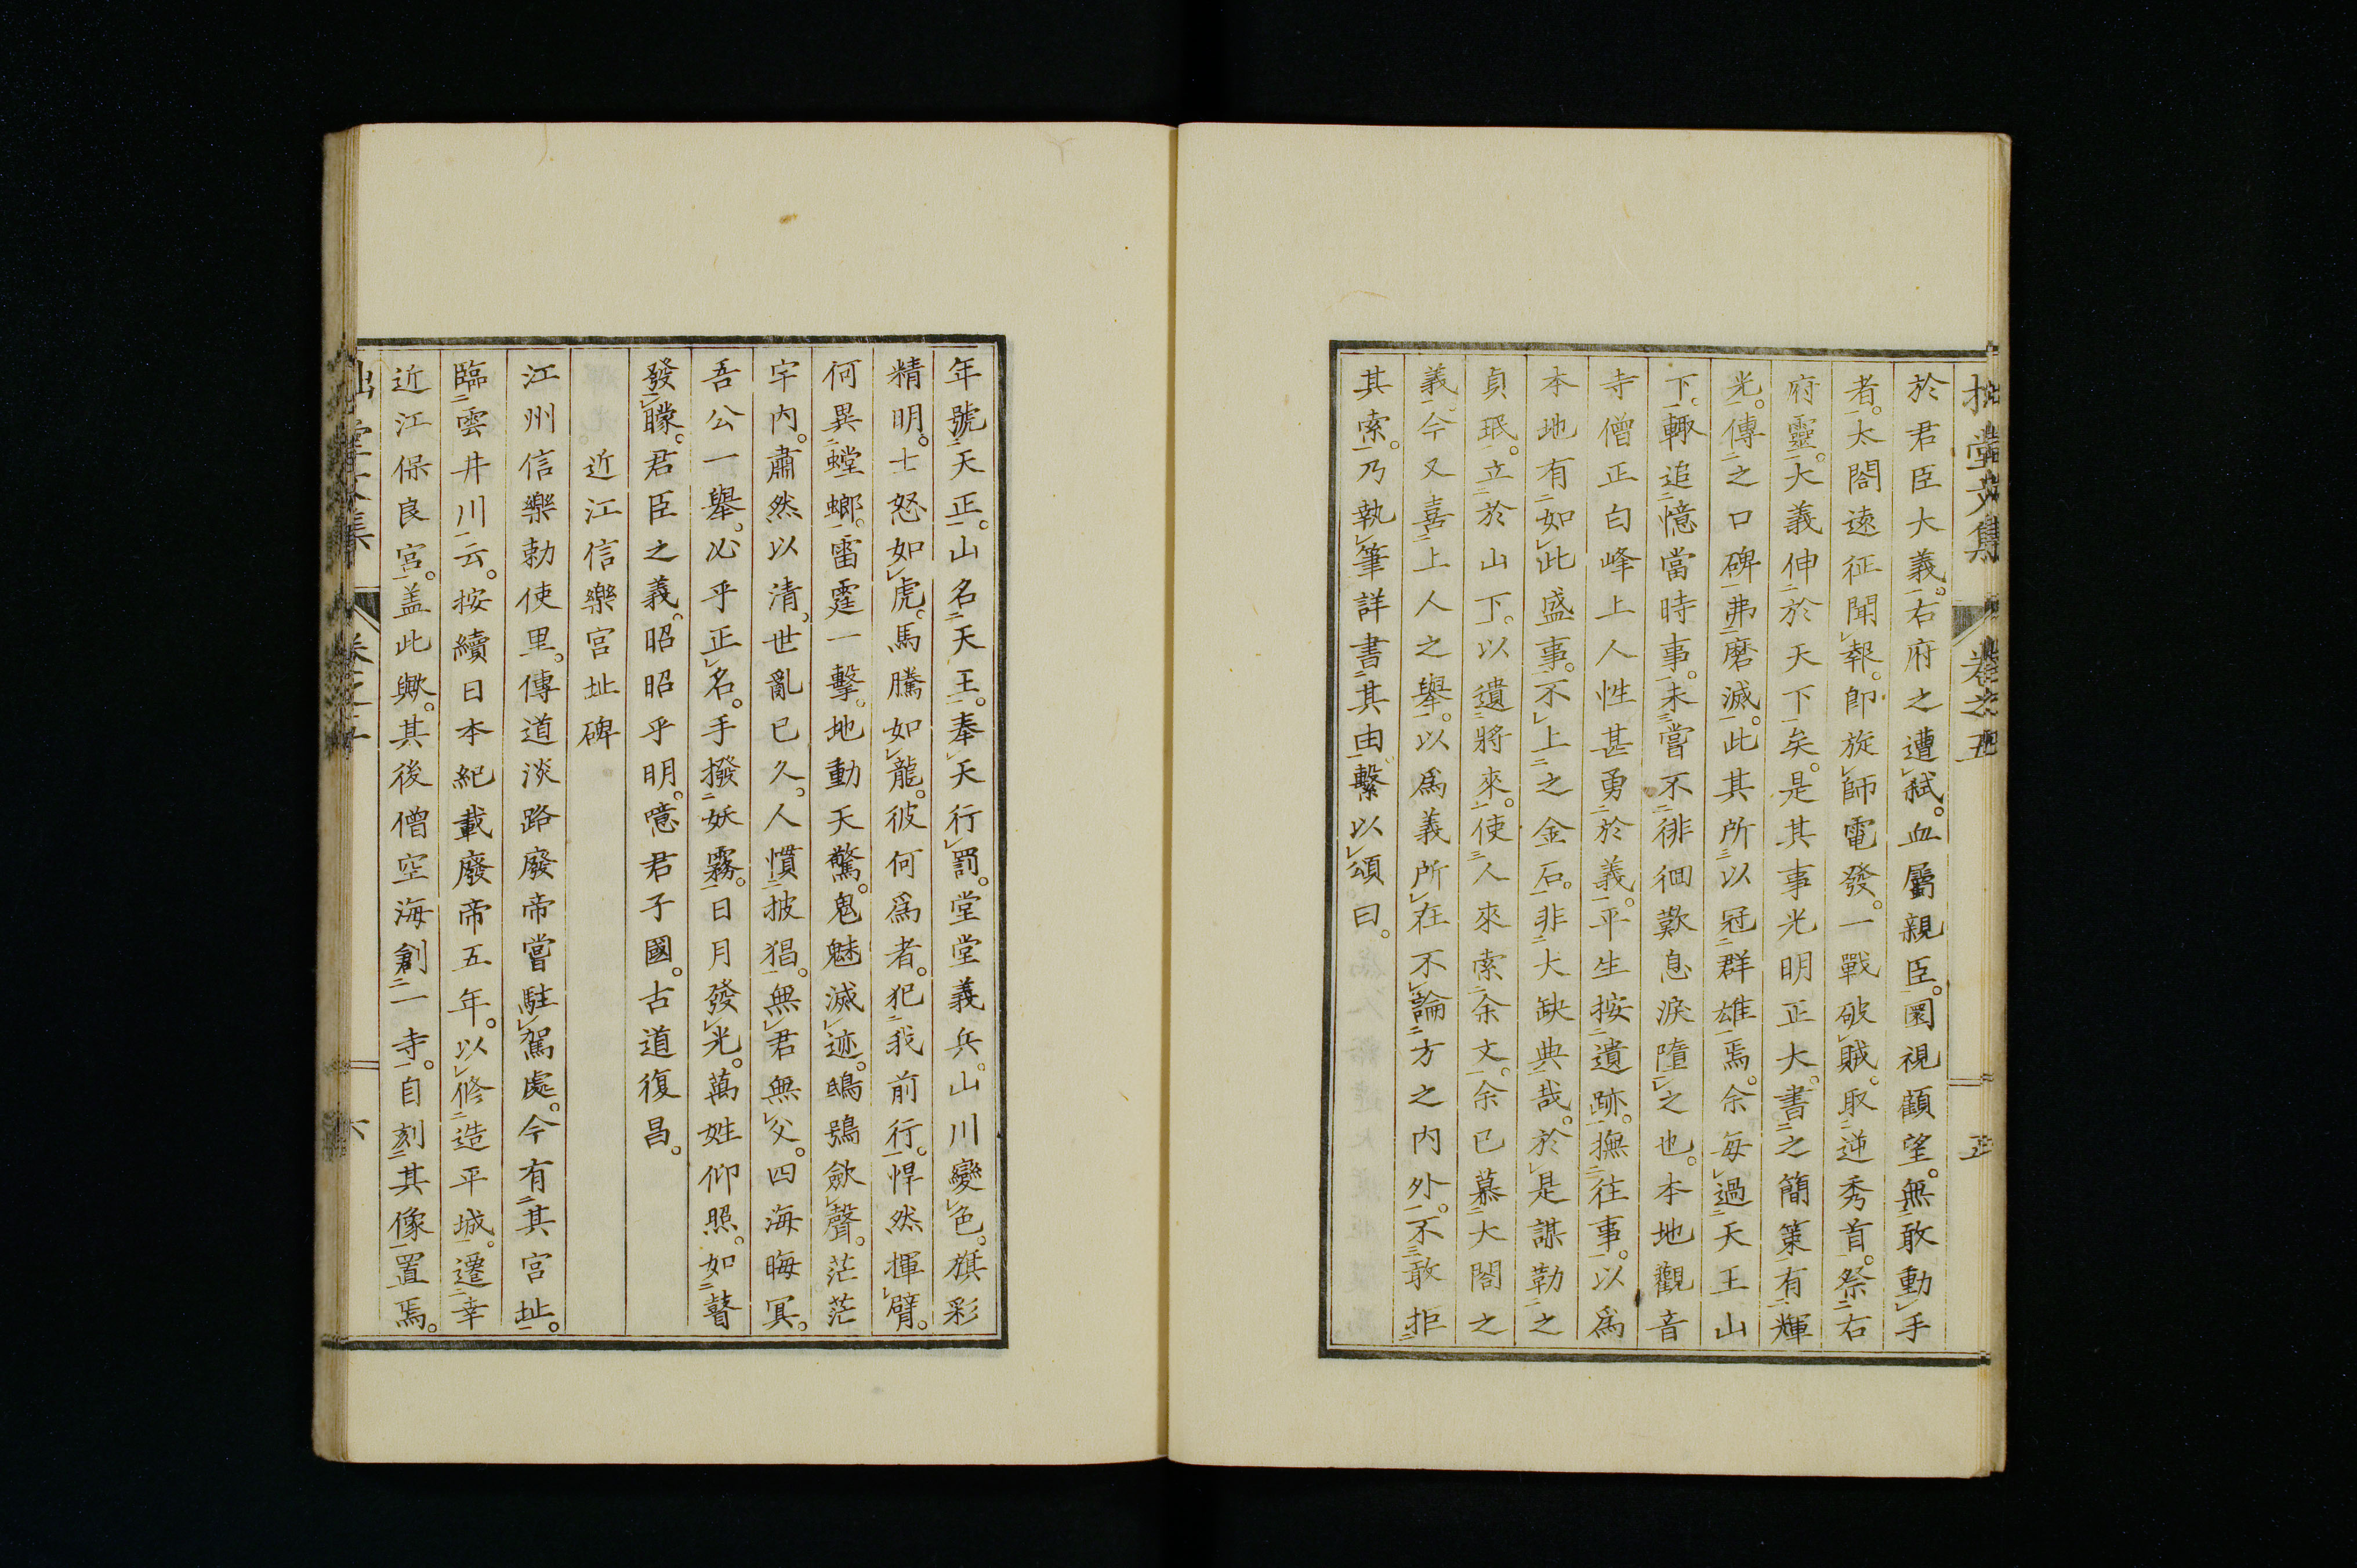 於君臣大義。右府之遭弑。血屬親臣。圜視顧望。無敢動手
者。太閤遠征聞報。卽旋師電發。一戰破賊。取逆秀首。祭右
府靈。大義伸於天下矣。是其事光明正大。書之簡策有輝
光。傳之口碑弗磨滅。此其所以冠群雄焉。余每過天王山
下。輙追憶當時事。未嘗不徘徊歎息淚隨之也。本地觀音
寺僧正白峰上人性甚勇於義。平生按遺跡。撫往事。以爲
本地有如此盛事。不上之金石。非大缺典哉。於是謀勒之
貞珉。立於山下。以遺將來。使人來索余文。余已慕大閤之
義。今又喜上人之舉。以爲義所在不論方之內外。不敢拒
其索。乃執筆詳書其由。繫以頌曰。
年號天正。山名天王。奉天行罰。堂堂義兵。山川變色。旗彩
精明。士怒如虎。馬騰如龍。彼何爲者。犯我前行。悍然揮臂。
何異螳螂。雷霆一擊。地動天驚。鬼魅滅迹。鴟鴞歛聲。茫茫
宇內。肅然以清。世亂已久。人慣披猖。無君無父。四海晦冥。
吾公一舉。必乎正名。手撥妖霧。日月發光。萬姓仰照。如瞽
發矇。君臣之義。昭昭乎明。噫君子國。古道復昌。
近江信樂宮址碑
江州信樂勅使里。傳道淡路廢帝嘗駐駕處。今有其宮址。
臨雲井川云。按續日本紀載廢帝五年。以修造平城。遷幸
近江保良宮。盖此歟。其後僧空海創一寺。自刻其像置焉。